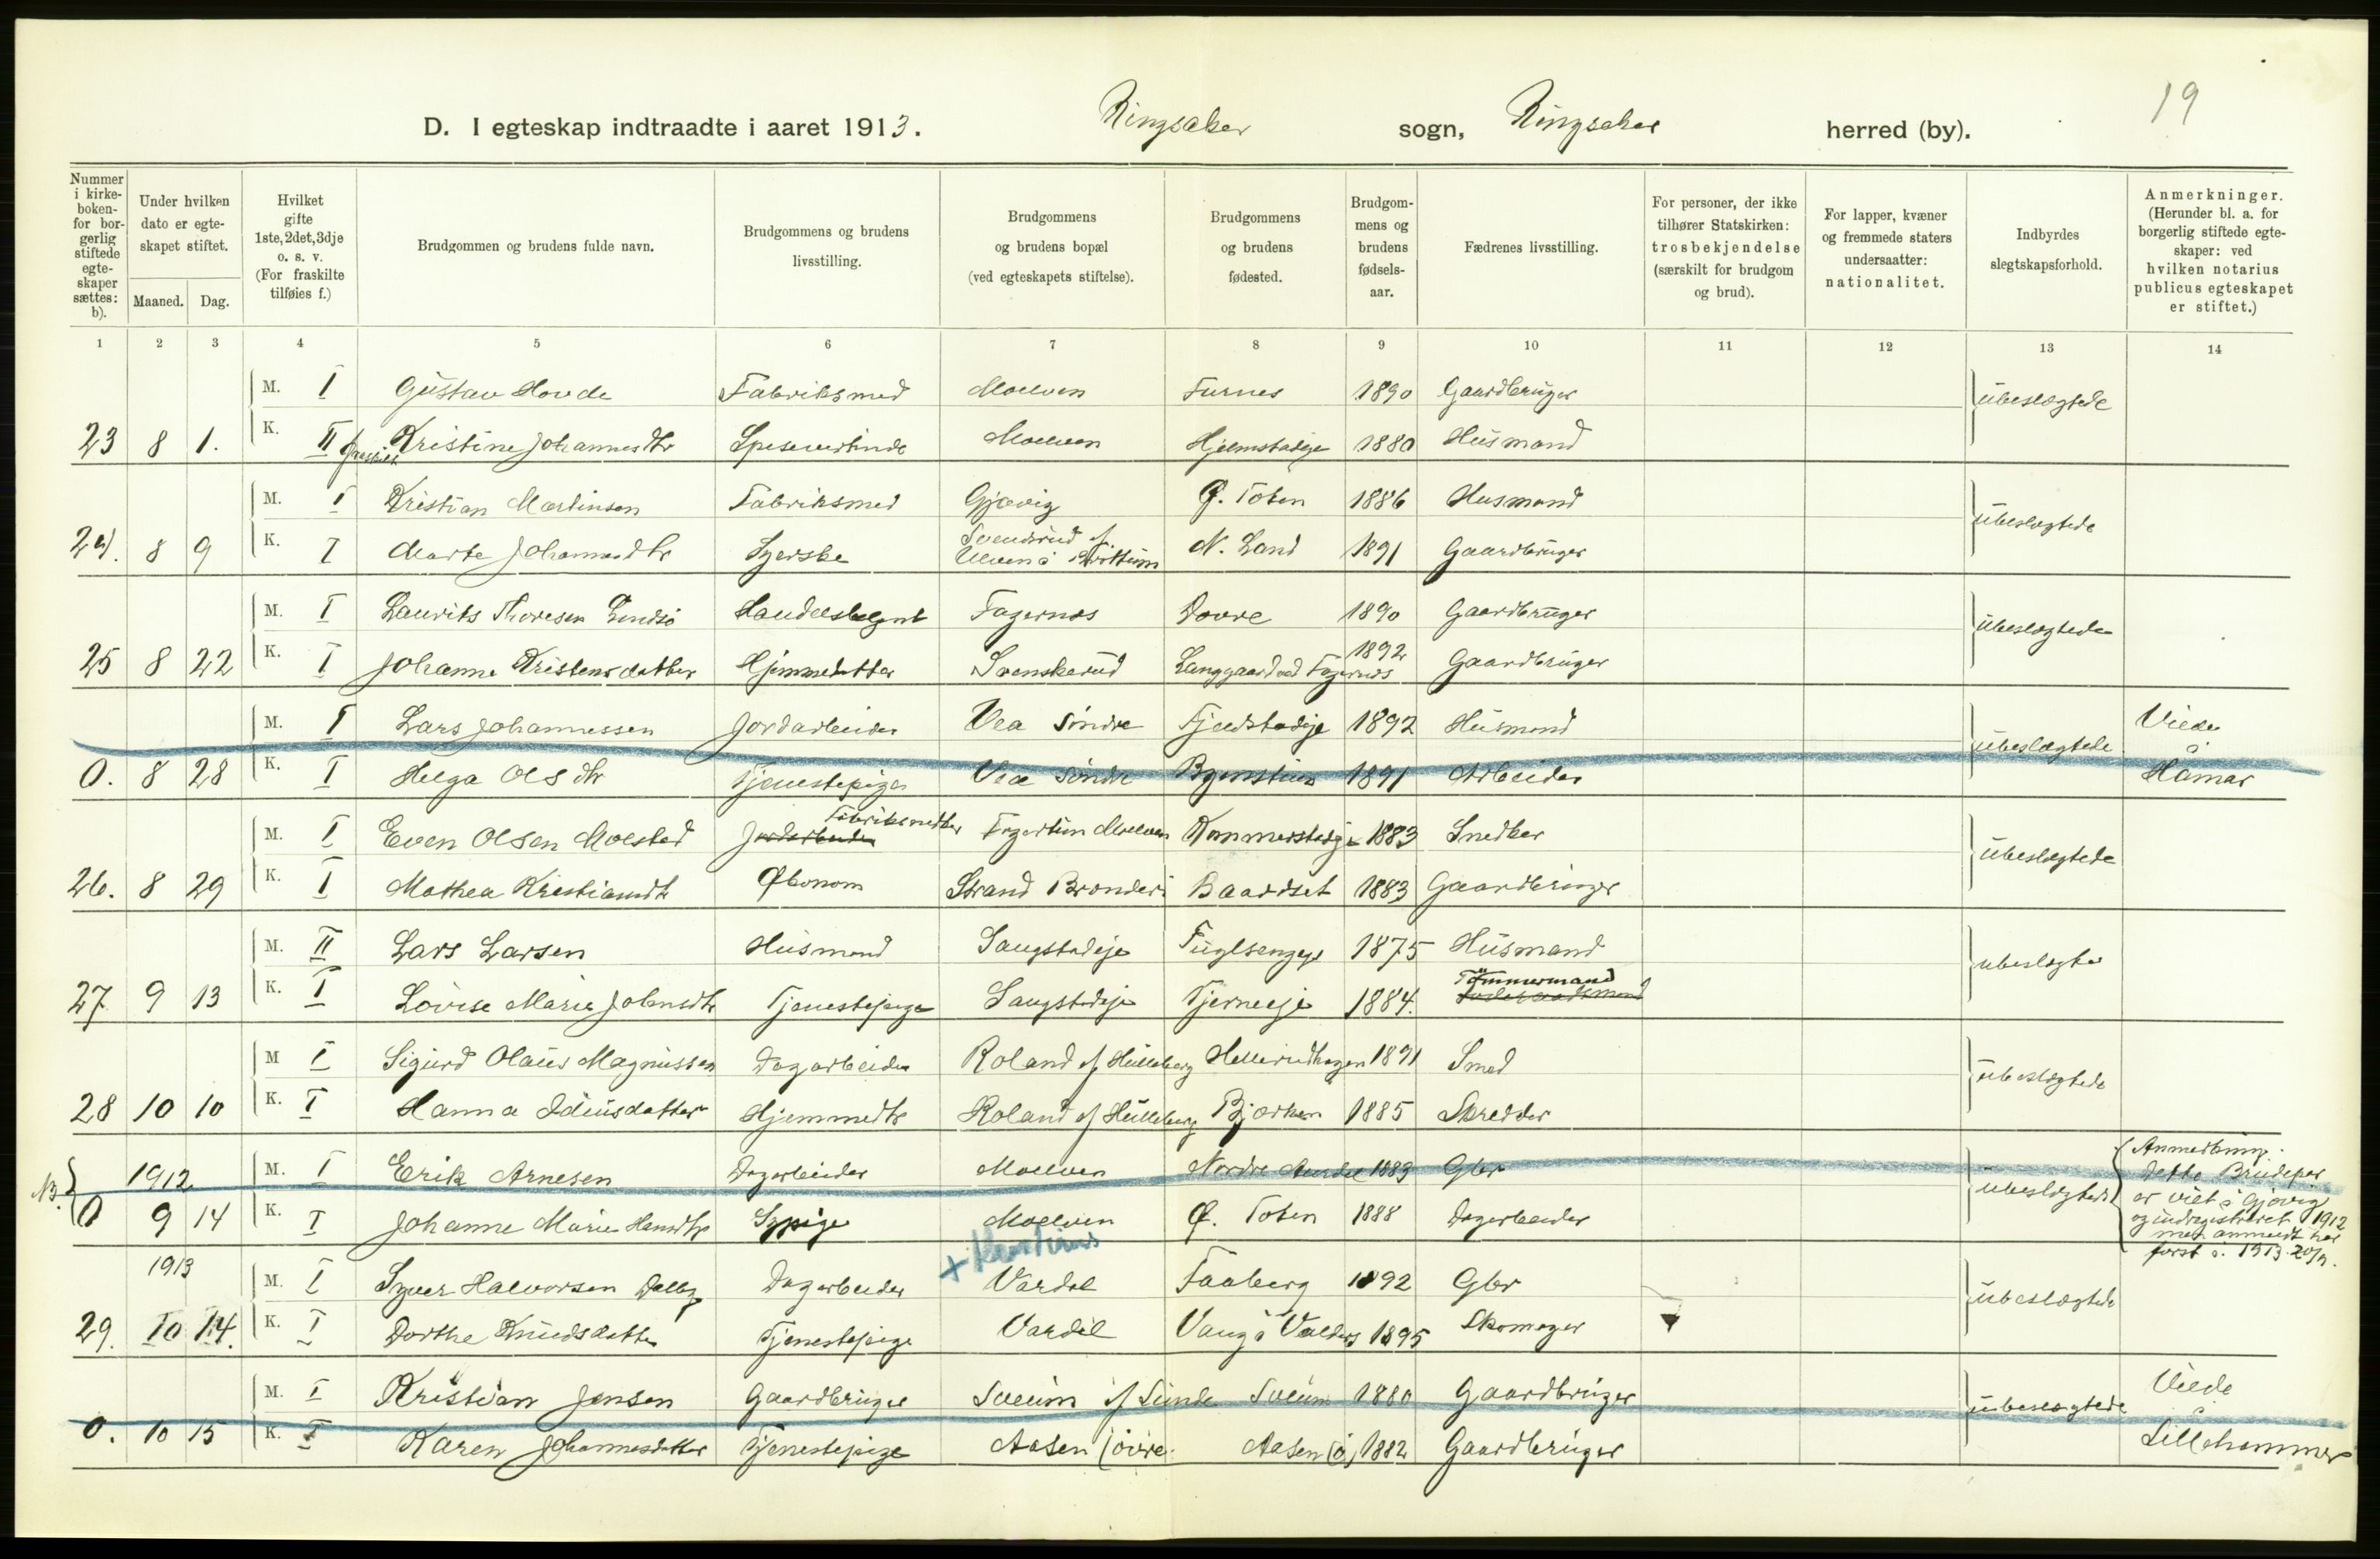 19
D. I egteskap indtraadte i aaret 1913. Ringsaker sogn, Ringsaker herred (by).
Nummer i kirkeboken- for borgerlig stiftede egteskaper sættes: b).
Under hvilken dato er egteskapet stiftet.
Maaned. Dag.
Hvilket gifte 1ste, 2det, 3dje o. s. v. (For fraskilte tilføies f.)
Brudgommen og brudens fulde navn.
Brudgommens og brudens livsstilling.
Brudgommens og brudens bopæl (ved egteskapets stiftelse).
Brudgommens og brudens fødested.
Brudgommens og brudens fødselsaar.
Fædrenes livsstilling.
For personer, der ikke tilhører Statskirken: trosbekjendelse (særskilt for brudgom og brud).
For lapper, kvæner og fremmede staters undersaatter: nationalitet.
Indbyrdes slegtskapsforhold.
Anmerkninger. (Herunder bl. a. for borgerlig stiftede egteskaper: ved hvilken notarius publicus egteskapet er stiftet.)
1 2 3 4 5 6 7 8 9 10 11 12 13 14
M. I Gustav Hovde Fabriksmed Moelven Furnes 1890 Gaardbruger ubeslegtede
23 8 1. K. II fraskilt Kristine Johannesdtr Spisevertinde Moelven Hjelmstadeje 1880 Husmand
M. I Kristian Martinsen Fabriksmed Gjøvig Ø. Toten 1886 Husmand ubeslegtede
24. 8 9 K. I Marte Johannesdtr Syerske Svendsrud af N. Land 1891 Gaardbruger
M. I Laurits Thoresen Handelsbegnt Fagernes Dovre 1890 Gaardbruger ubeslegtede
25 8 22 K. I Johanne Kristensdatter Hjemmedatter Svenskerud Langgaard ved Fagernes 1892 Gaardbruger
M. I Lars Johannessen Jordarbeider Vea søndre Fjeldstadeje 1892 Husmand ubeslægtede Viede i Hamar
0. 8 28 K. I Helga Olsdtr Tjenestepige Vea søndre 1891 Arbeider
M. I Even Olsen Moestad Jordarbeider Fabriksnedker Fagertun Moelven 1883 Snedker ubeslegtede
26. 8 29 K. I Mathea Kristiansdtr Økonom Strand Baardset 1883 Gaardbruger
M. II Lars Larsen Husmand Saugstadeje Fuglsengeje 1875 Husmand ubeslegte
27 9 13 K. I Lovise Marie Johnsdtr Tjenestepige Saugstadeje Tjerneeje 1884. Tømmermand
M I Sigurd Olaus Magnussen Dagarbeider Roland af Hulleberg 1891 Smed ubeslegtede
28 10 10 K. I Hanna Idiusdatter Hjemmedtr Roland af Hulleberg Bjerken 1885 Skredder
NB. 1912 M. I Erik Arnesen Dagarbeider Moelven Nordre Aurdal 1883 Gbr ubeslegtede Anmerkning. Dette Brudepar er viet i Gjøvig og indregistreret 1912 men anmeldt her først i 1913 20/9.
0 9 14 K. I Johanne Marie Hansdtr Sypige Moelven Ø. Toten 1888 Dagarbeider
1913 M. I Syver Halvorsen Dalby Dagarbeider Vardal Faaberg 1892 Gbr ubeslegtede
29. 10 14. K. I Dorthe Knudsdatter Tjenestepige Vardal Vang i Valders 1895 Skomager
M. I Kristian Jensen Gaardbruger Sveum af Sunde Sveum 1880 Gaardbruger ubeslegtede Viede i Lillehammer
0. 10 15 K. I Karen Johannesdatter Tjenestepige Aasen (øvre) Aasen (ø) 1882 Gaardbruger